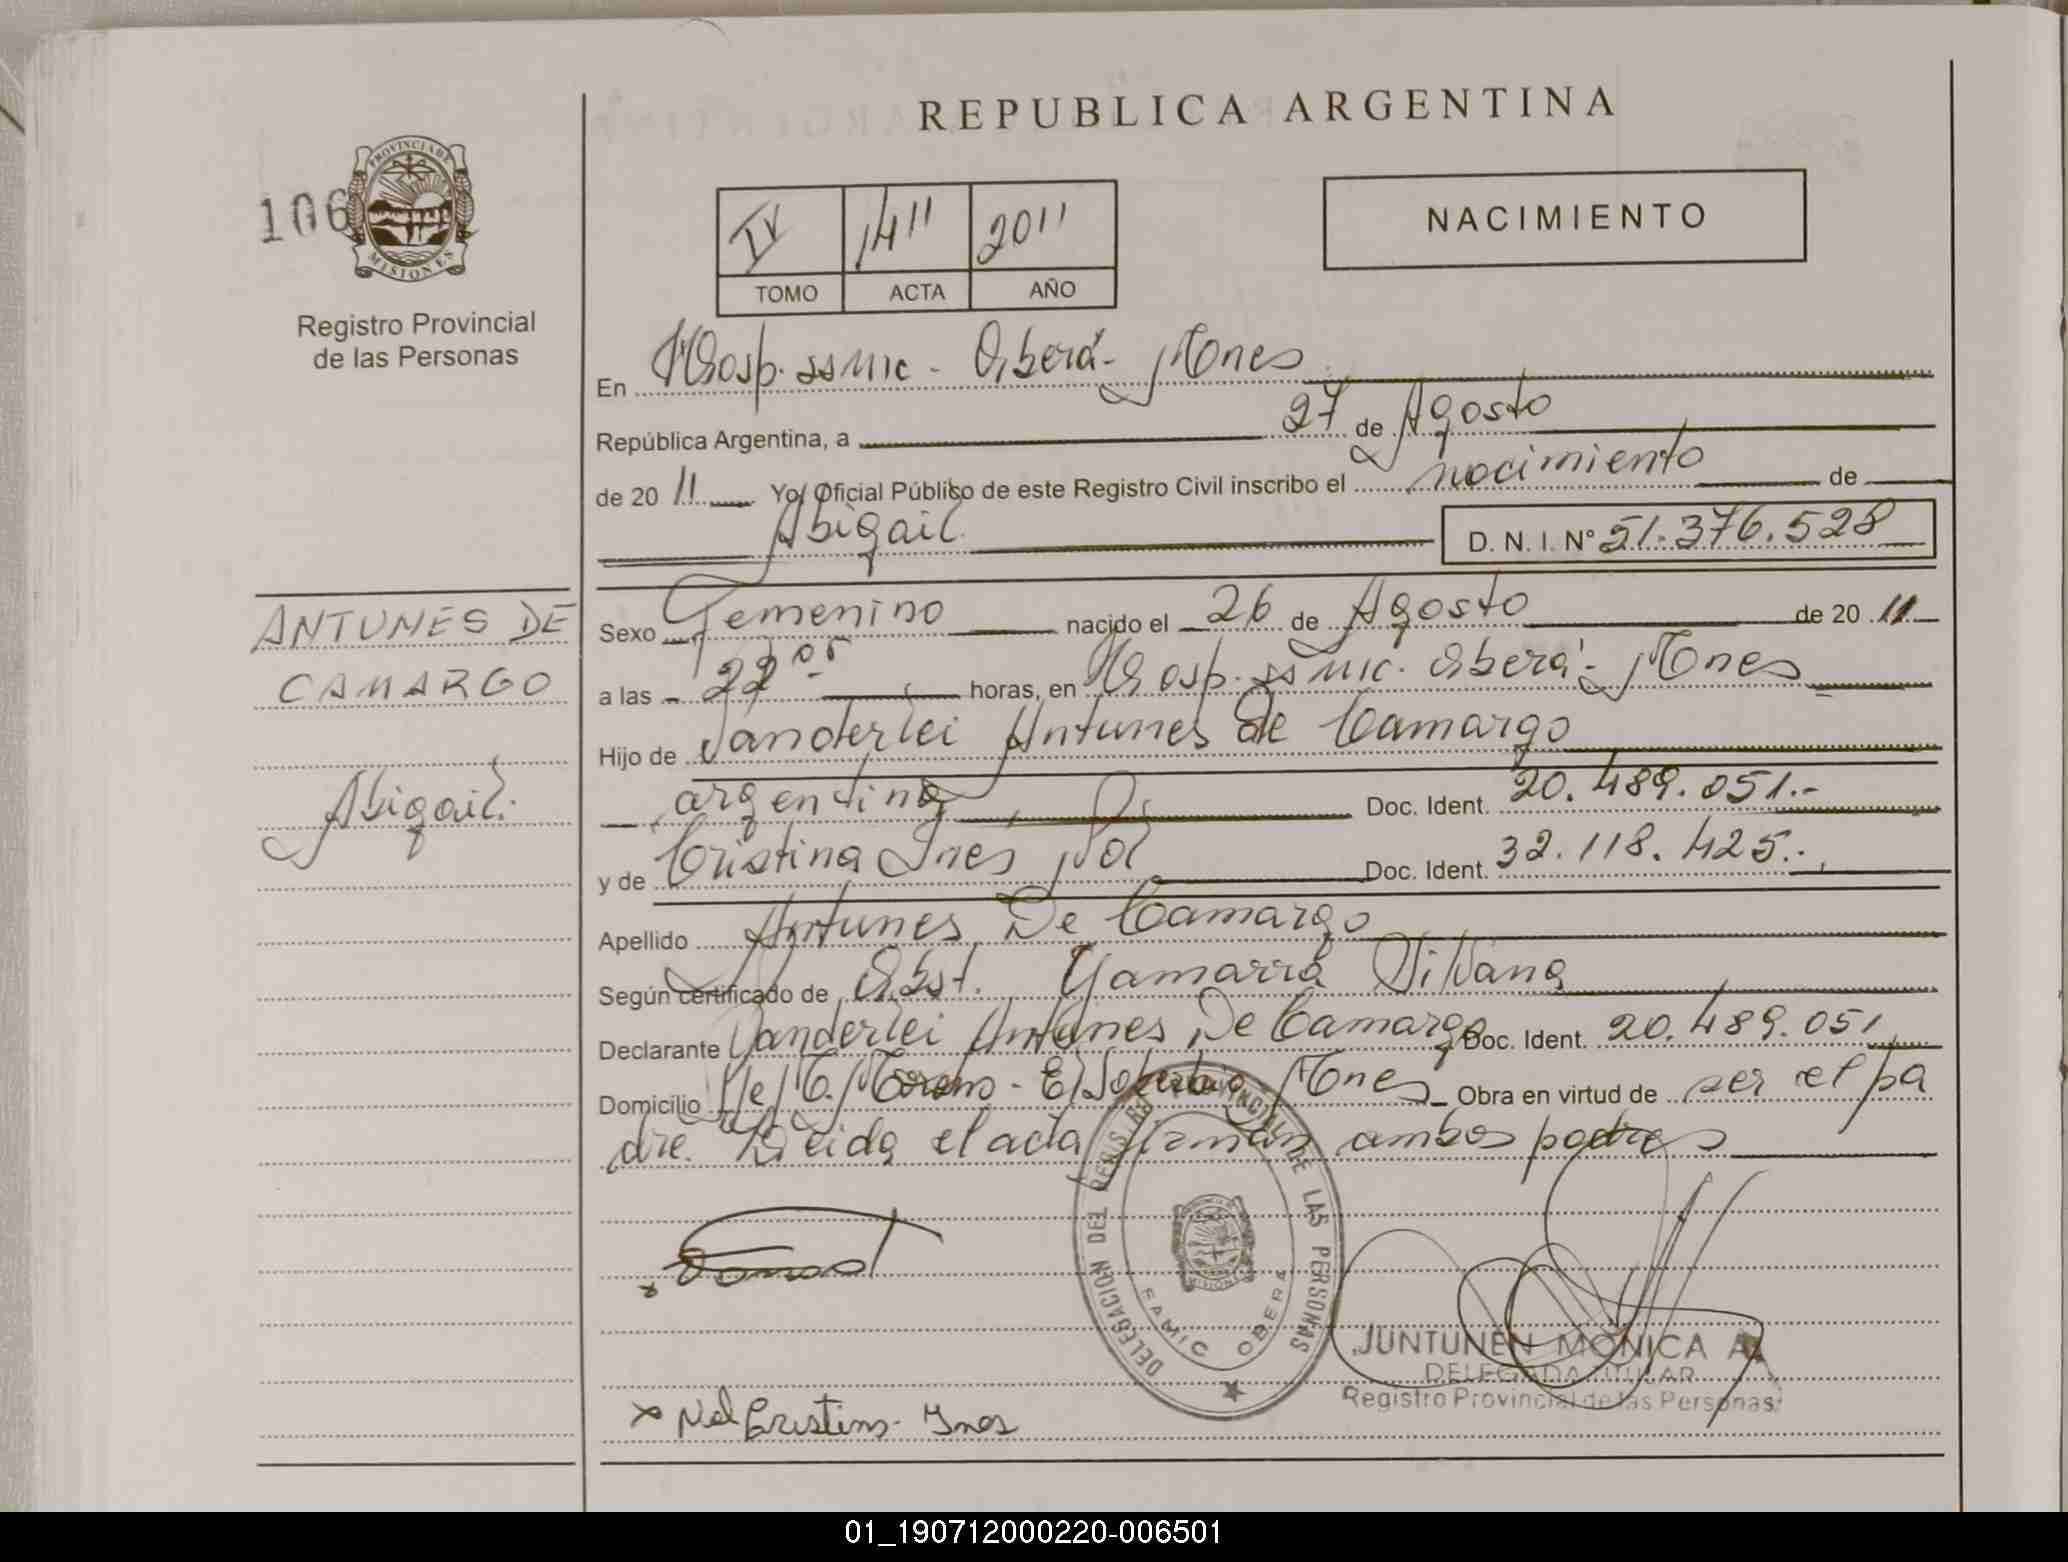 REPUBLICA ARGENTINA
106
PROVINCIA DE
MISIONES
Registro Provincial
de las Personas
NACIMIENTO
IV 1411 2011
TOMO ACTA AÑO
En Hosp. SSMIC - Oberá - Mones
República Argentina, a 27 de Agosto
de 20 11 Yo, Oficial Público de este Registro Civil inscribo el nacimiento de
Abigail D. N. I. N° 51.376.528
ANTUNES DE
CAMARGO
Abigail.
Sexo Femenino nacido el 26 de Agosto de 20 11
a las 22 05 horas, en Hosp. SSMIC. Oberá - Mones
Hijo de Vanderlei Antunes De Camargo
argentina Doc. Ident. 20.489.051.-
y de Cristina Ines Doc. Ident. 32.118.425.-
Apellido Antunes De Camargo
Según certificado de Obst. Yamarra Silvana
Declarante Vanderlei Antunes De Camargo Doc. Ident. 20.489.051
Domicilio M. Moreno - El Soberbio Mones Obra en virtud de ser el pa
dre. Leida el acta firman ambos padres
DELEGACION DEL REGISTRO PROVINCIAL DE LAS PERSONAS
MISIONES
SAMIC OBERA
JUNTUNEN MONICA A.
DELEGADA TITULAR
Registro Provincial de las Personas
x Cristina Ines
01_190712000220-006501